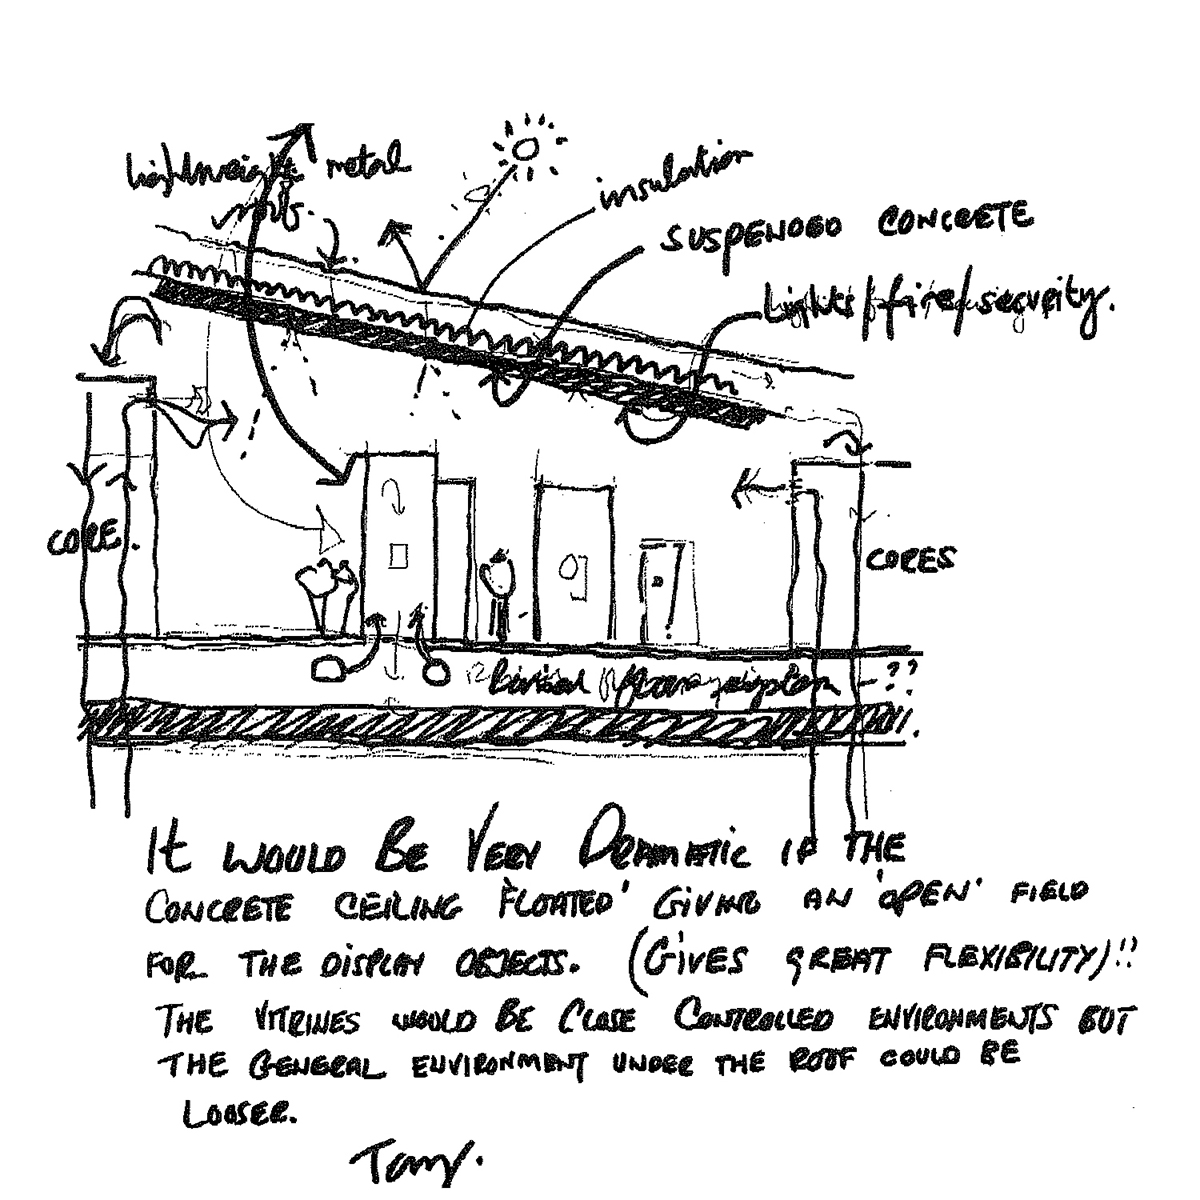 lightweight metal
roofs.
insulation
SUSPENDED CONCRETE
Lights/fire/security.
CORE.
CORES
floor system - ??
It WOULD BE VERY DRAMATIC IF THE
CONCRETE CEILING 'FLOATED' GIVING AN 'OPEN' FIELD
FOR THE DISPLAY OBJECTS. (GIVES GREAT FLEXIBILITY)!!
THE VITRINES WOULD BE CLOSE CONTROLLED ENVIRONMENTS BUT
THE GENERAL ENVIRONMENT UNDER THE ROOF COULD BE
LOOSER.
Tony.